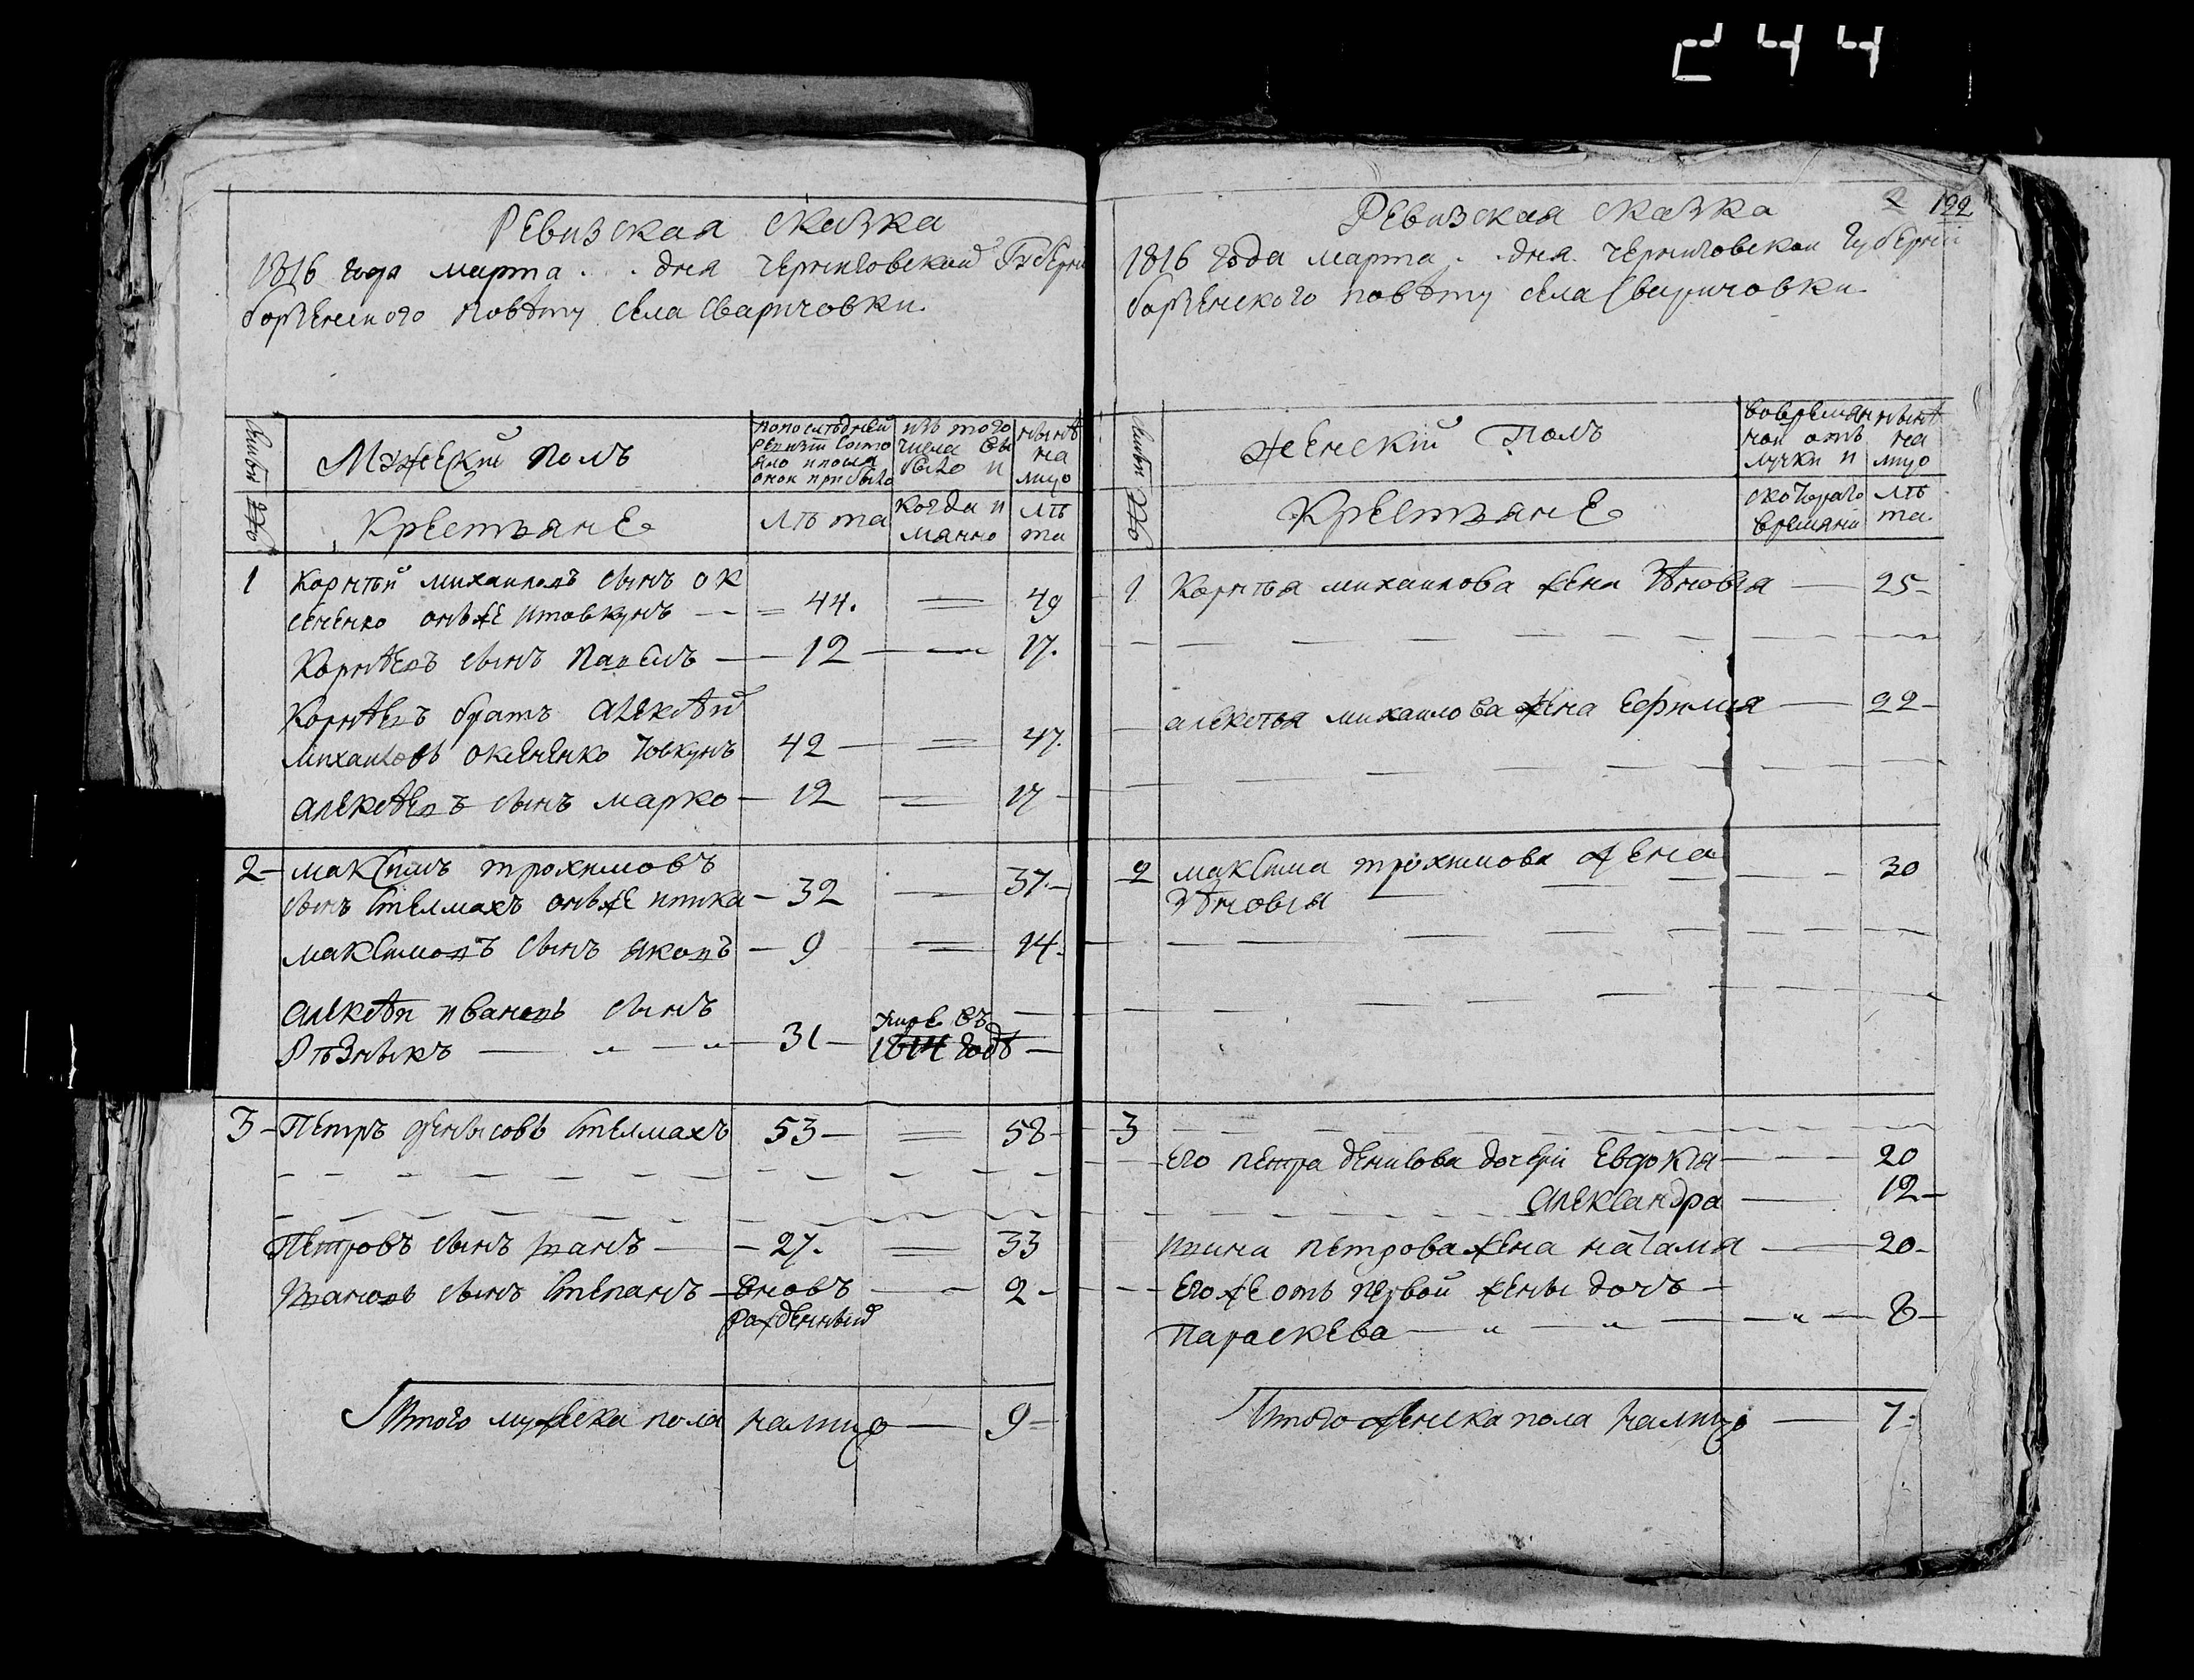 244
Ревизская сказка
1816 года марта . . . дня Черниговской Губерни
борзенского повѣту села Сваричовки.
Мужеский полъ
попоследней ревизіи состояло и после онои прибыло
изъ того числа выбыло и
нынѣ на лицо
Крестьяне
Лѣта
когда и мянно
лѣта
1 Корнѣй михаиловъ сынъ ок
сененко онъже итовкунъ — 44. = 49
Корнѣевъ сынъ Павелъ — 12 — 17.
Корнѣевъ братъ алексѣй
михаиловъ оксененко товкунъ 42 — = 47.
алексѣевъ сынъ марко — 12 = 17 -
2 - максимъ трохимовъ
сынъ стелмахъ онъже итика — 32 — 37. -
максимовъ сынъ яковъ — 9 = 14. -
алексѣй ивановъ сынъ
Рѣзныкъ — „ — „ — 31 — умре въ 1814 годѣ —
3 - Петръ денысовъ стелмахъ 53 — = 58 -
Петровъ сынъ Иванъ — 27. = 33
Ивановъ сынъ степанъ — вновъ рожденный — 2 -
Итого мужеска пола налицо — 9 -
2 122
Ревизская сказка
1816 года марта . . дня Черниговской Губерніи
борзенского повѣту села Сваричовки
женский Полъ
вовременной отлучки и
нынѣ на лицо
Крестьяне
скоторого времяни
лѣта.
1 Корнѣя михаилова жена Зѣновія — 25 -
алексѣя михаилова жена Ефимия — 22 -
2 максима трохимова жена — 30
Зѣновія
3
его петра денисова дочери Евдокія — 20
александра — 12 -
ивана петрова жена наталия — 20 -
его же отъ первой жены дочъ —
Параскева — „ — „ — „ — 8 -
Итого женска пола налицо — 7 -